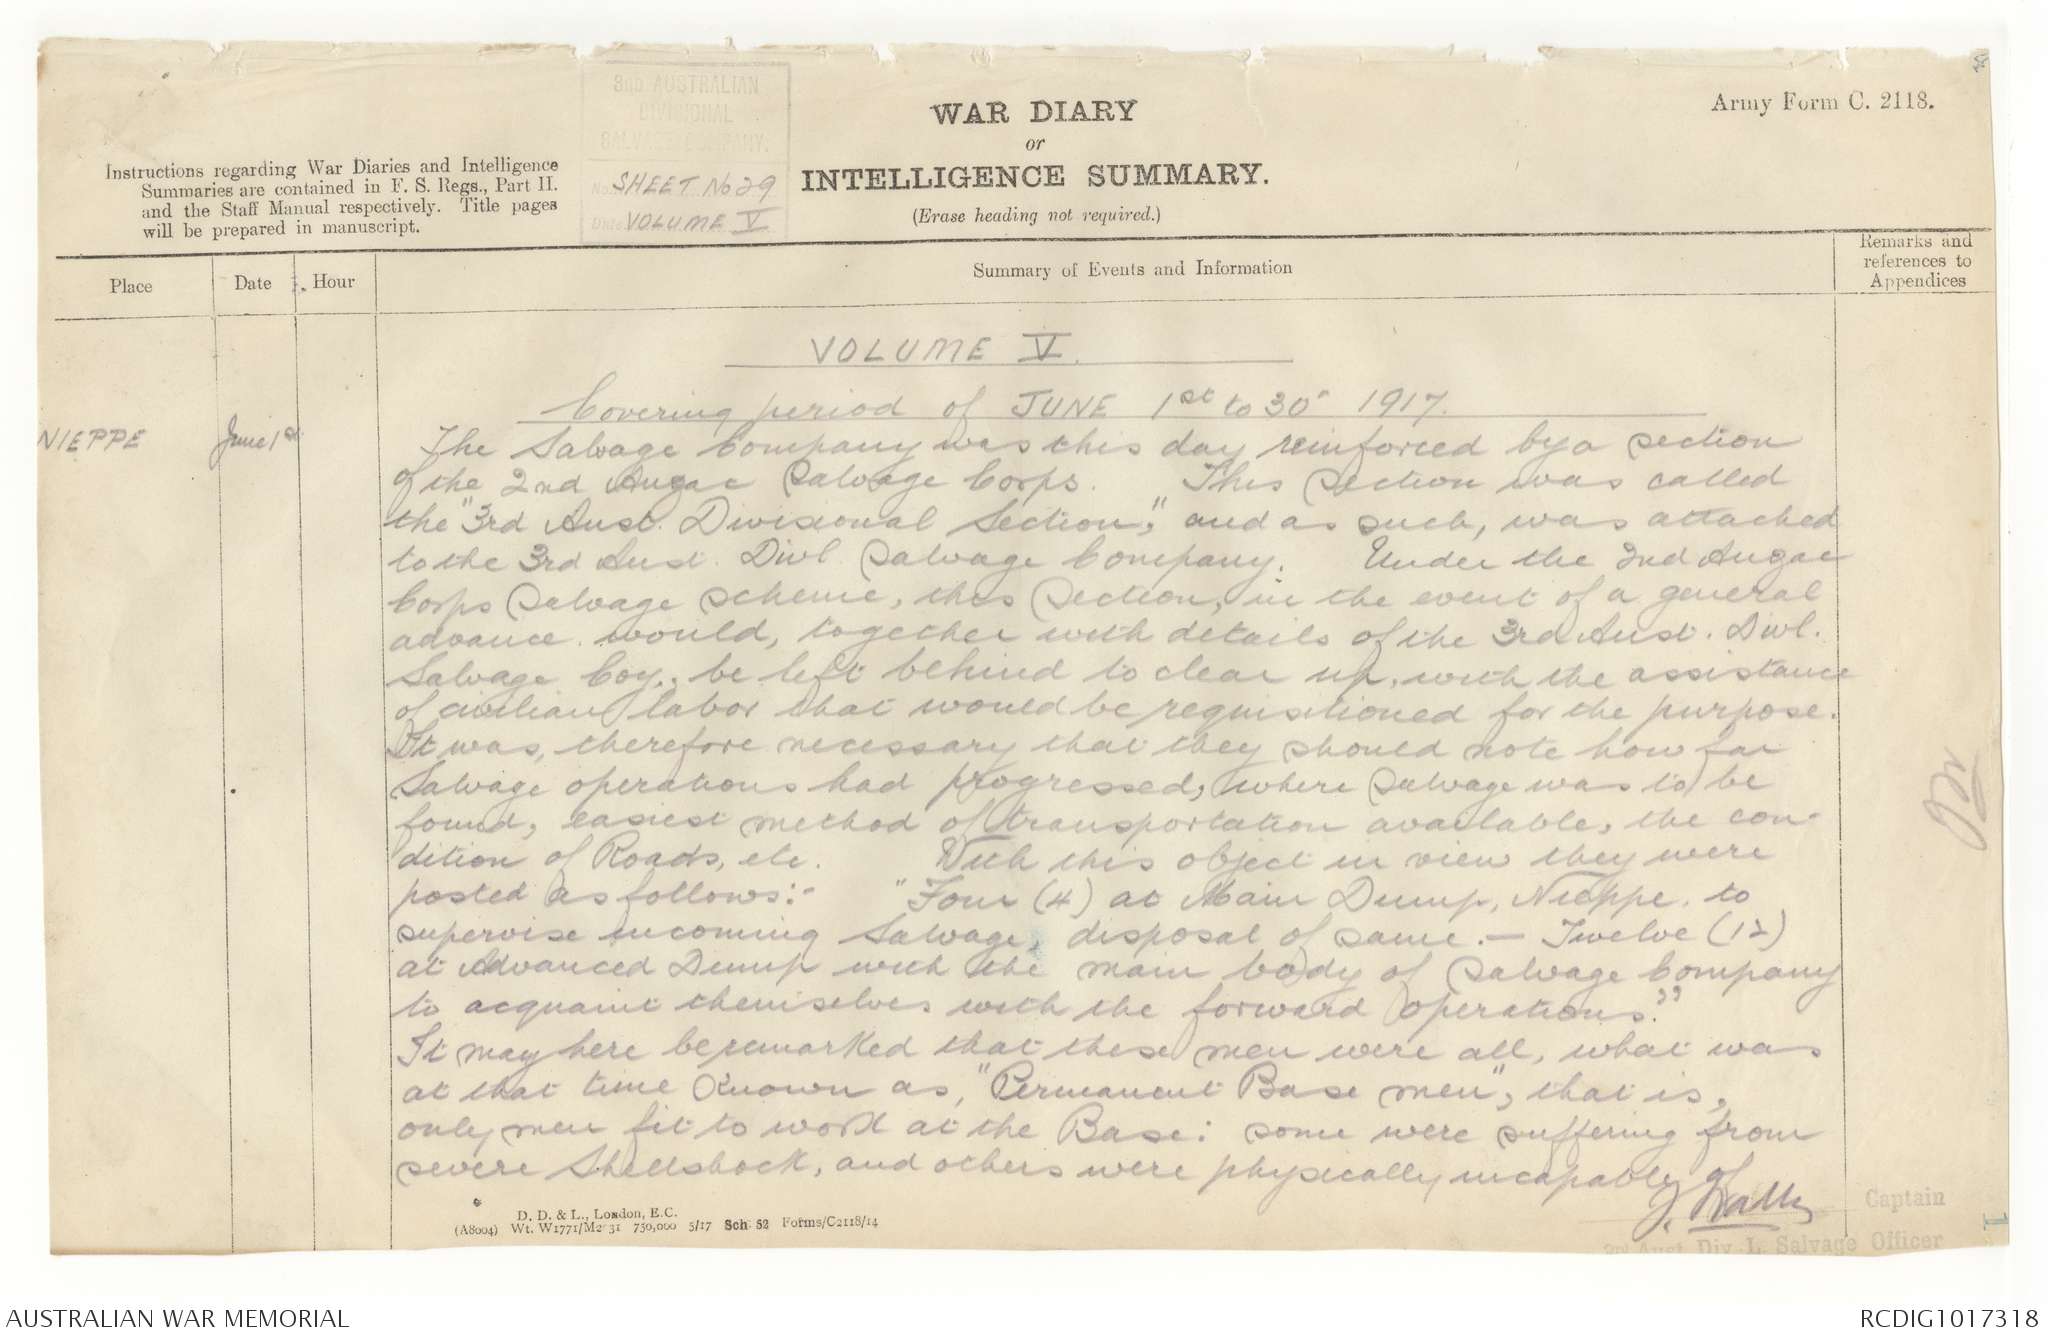 3RD AUSTRALIAN
DIVISIONAL
SALVAGE COMPANY.
No. SHEET No 29
Date VOLUME V
WAR DIARY
or
INTELLIGENCE SUMMARY.
(Erase heading not required.)
Army Form C. 2118.
Instructions regarding War Diaries and Intelligence
Summaries are contained in F. S. Regs., Part II.
and the Staff Manual respectively. Title pages
will be prepared in manuscript.
Place
Date
Hour
Summary of Events and Information
Remarks and
references to
Appendices
VOLUME V.
Covering period of JUNE 1st to 30 1917.
NIEPPE June 1st
The Salvage Company was this day reinforced by a section
of the 2nd Anzac Salvage Corps. This Section was called
the "3rd Aust. Divisional Section," and as such, was attached
to the 3rd Aust. Divl. Salvage Company. Under the 2nd Anzac
Corps Salvage Scheme, this Section, in the event of a general
advance would, together with details of the 3rd Aust. Divl.
Salvage Coy., be left behind to clear up, with the assistance
of civilian labor that would be requisitioned for the purpose.
It was, therefore necessary that they should note how far
Salvage operations had progressed, where Salvage was to be
found, easiest method of transportation available, the con-
dition of Roads, etc. With this object in view they were
posted as follows:- "Four (4) at Main Dump, Nieppe, to
supervise incoming Salvage, disposal of same. — Twelve (12)
at Advanced Dump with the main body of Salvage Company
to acquaint themselves with the forward operations."
It may here be remarked that these men were all, what was
at that time known as, "Permanent Base men", that is,
only men fit to work at the Base: some were suffering from
severe Shellshock, and others were physically incapable of
Captain
3rd Aust. Div. L. Salvage Officer
1
D. D. & L., London, E.C.
(A8004) Wt. W1771/M2 31 750,000 5/17 Sch. 52 Forms/C2118/14
AUSTRALIAN WAR MEMORIAL
RCDIG1017318